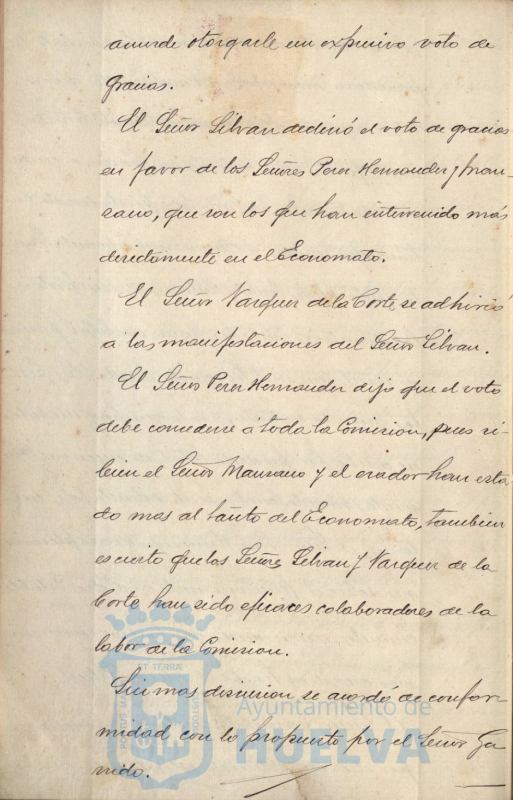 acuerde otorgarle un expresivo voto de
gracias.
El Señor Silvan declinó el voto de gracias
en favor de los Señores Perez Hernandez y Man-
zano, que son los que han intervenido más
directamente en el Economato.
El Señor Vazquez de la Corte se adhirió
á las manifestaciones del Señor Silvan.
El Señor Perez Hernandez dijo que el voto
debe concederse á toda la Comision, pues si
bien el Señor Manzano y el orador han esta-
do mas al tanto del Economato, tambien
es cierto que los Señores Silvan y Vazquez de la
Corte han sido eficaces colaboradores de la
labor de la Comision.
Sin mas discusion se acordó de confor-
midad con lo propuesto por el Señor Ga-
rrido.
Ayuntamiento de
HUELVA